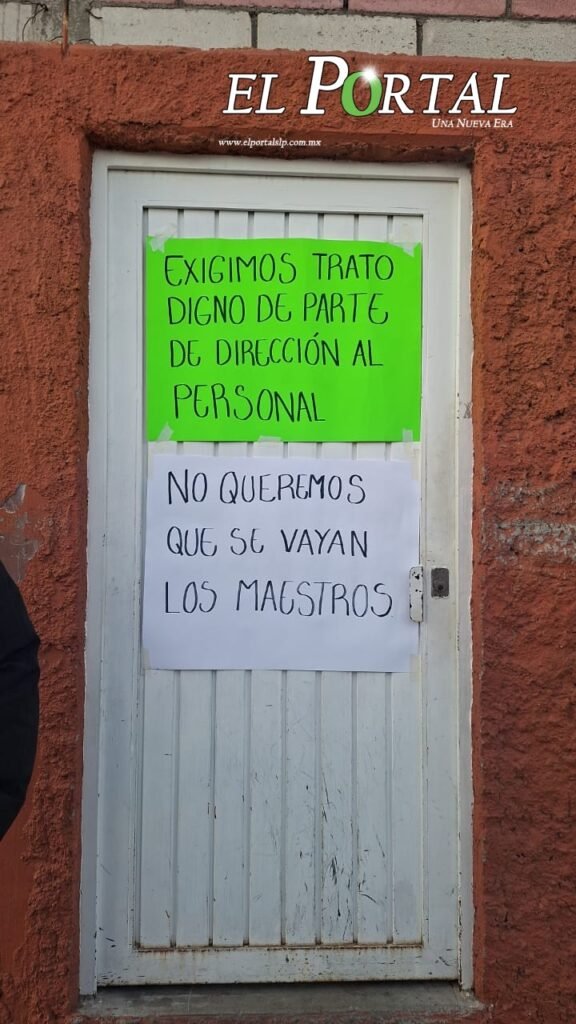 EL PORTAL
UNA NUEVA ERA
www.elportalslp.com.mx
EXIGIMOS TRATO
DIGNO DE PARTE
DE DIRECCIÓN AL
PERSONAL
NO QUEREMOS
QUE SE VAYAN
LOS MAESTROS